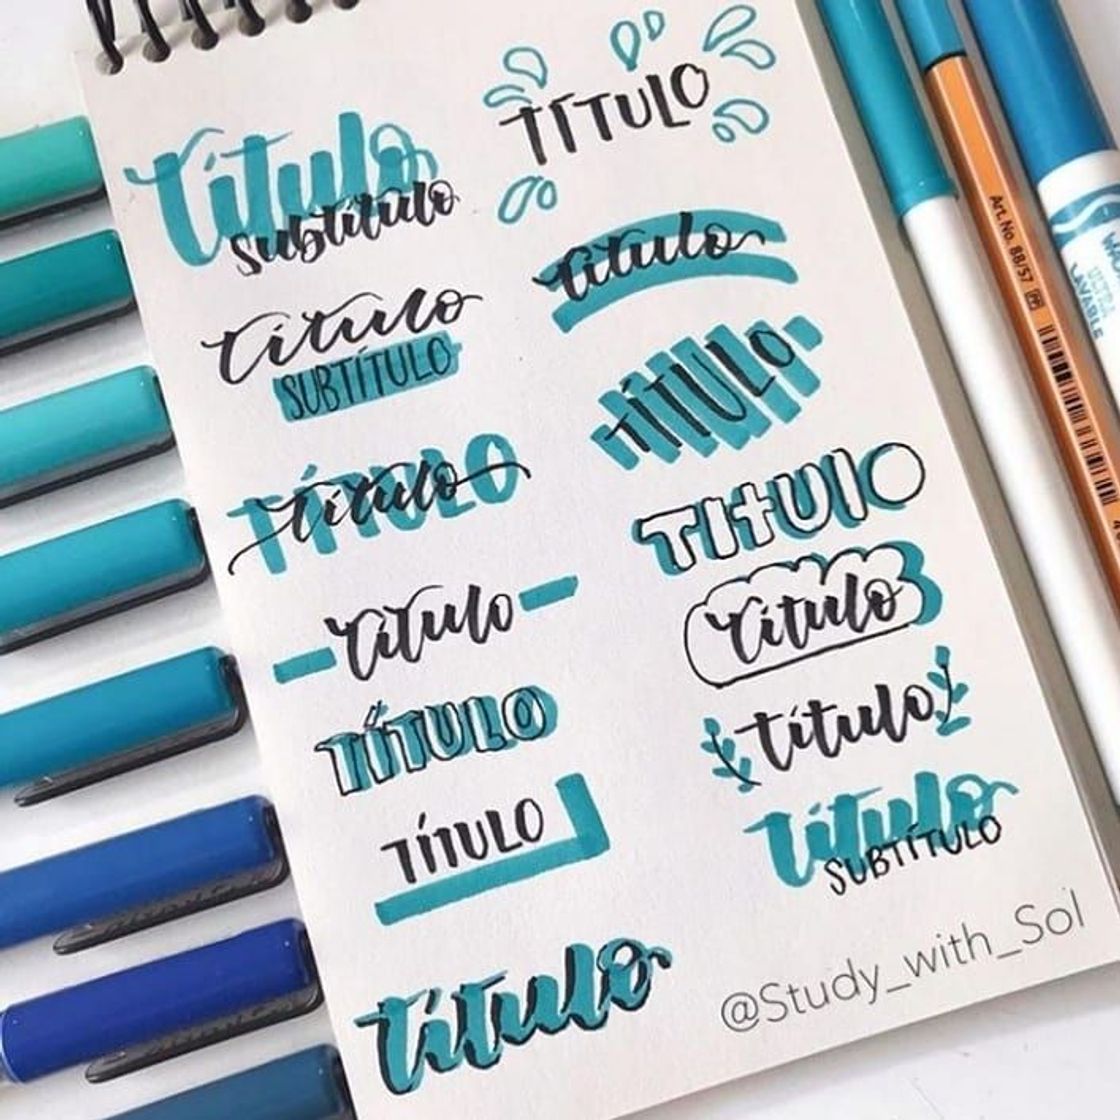 Título
Subtítulo
TÍTULO
título
SUBTÍTULO
título
TÍTULO
título
TÍTULO
TITULO
Título
TÍTULO
Título
TÍTULO
título
Título
SUBTÍTULO
Título
@Study_with_Sol
Art. No. 88/57
WASHABLE